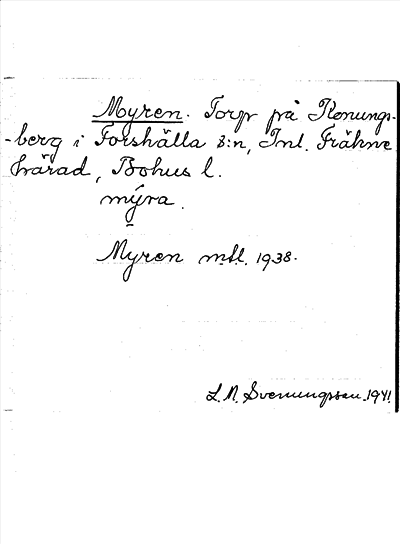 Myren. Torp på Konungs-
-berg i Forshälla s:n, Inl. Fräkne
härad, Bohus l.
mýra.
Myren mtl. 1938.
L. M. Svenungsson. 1941.